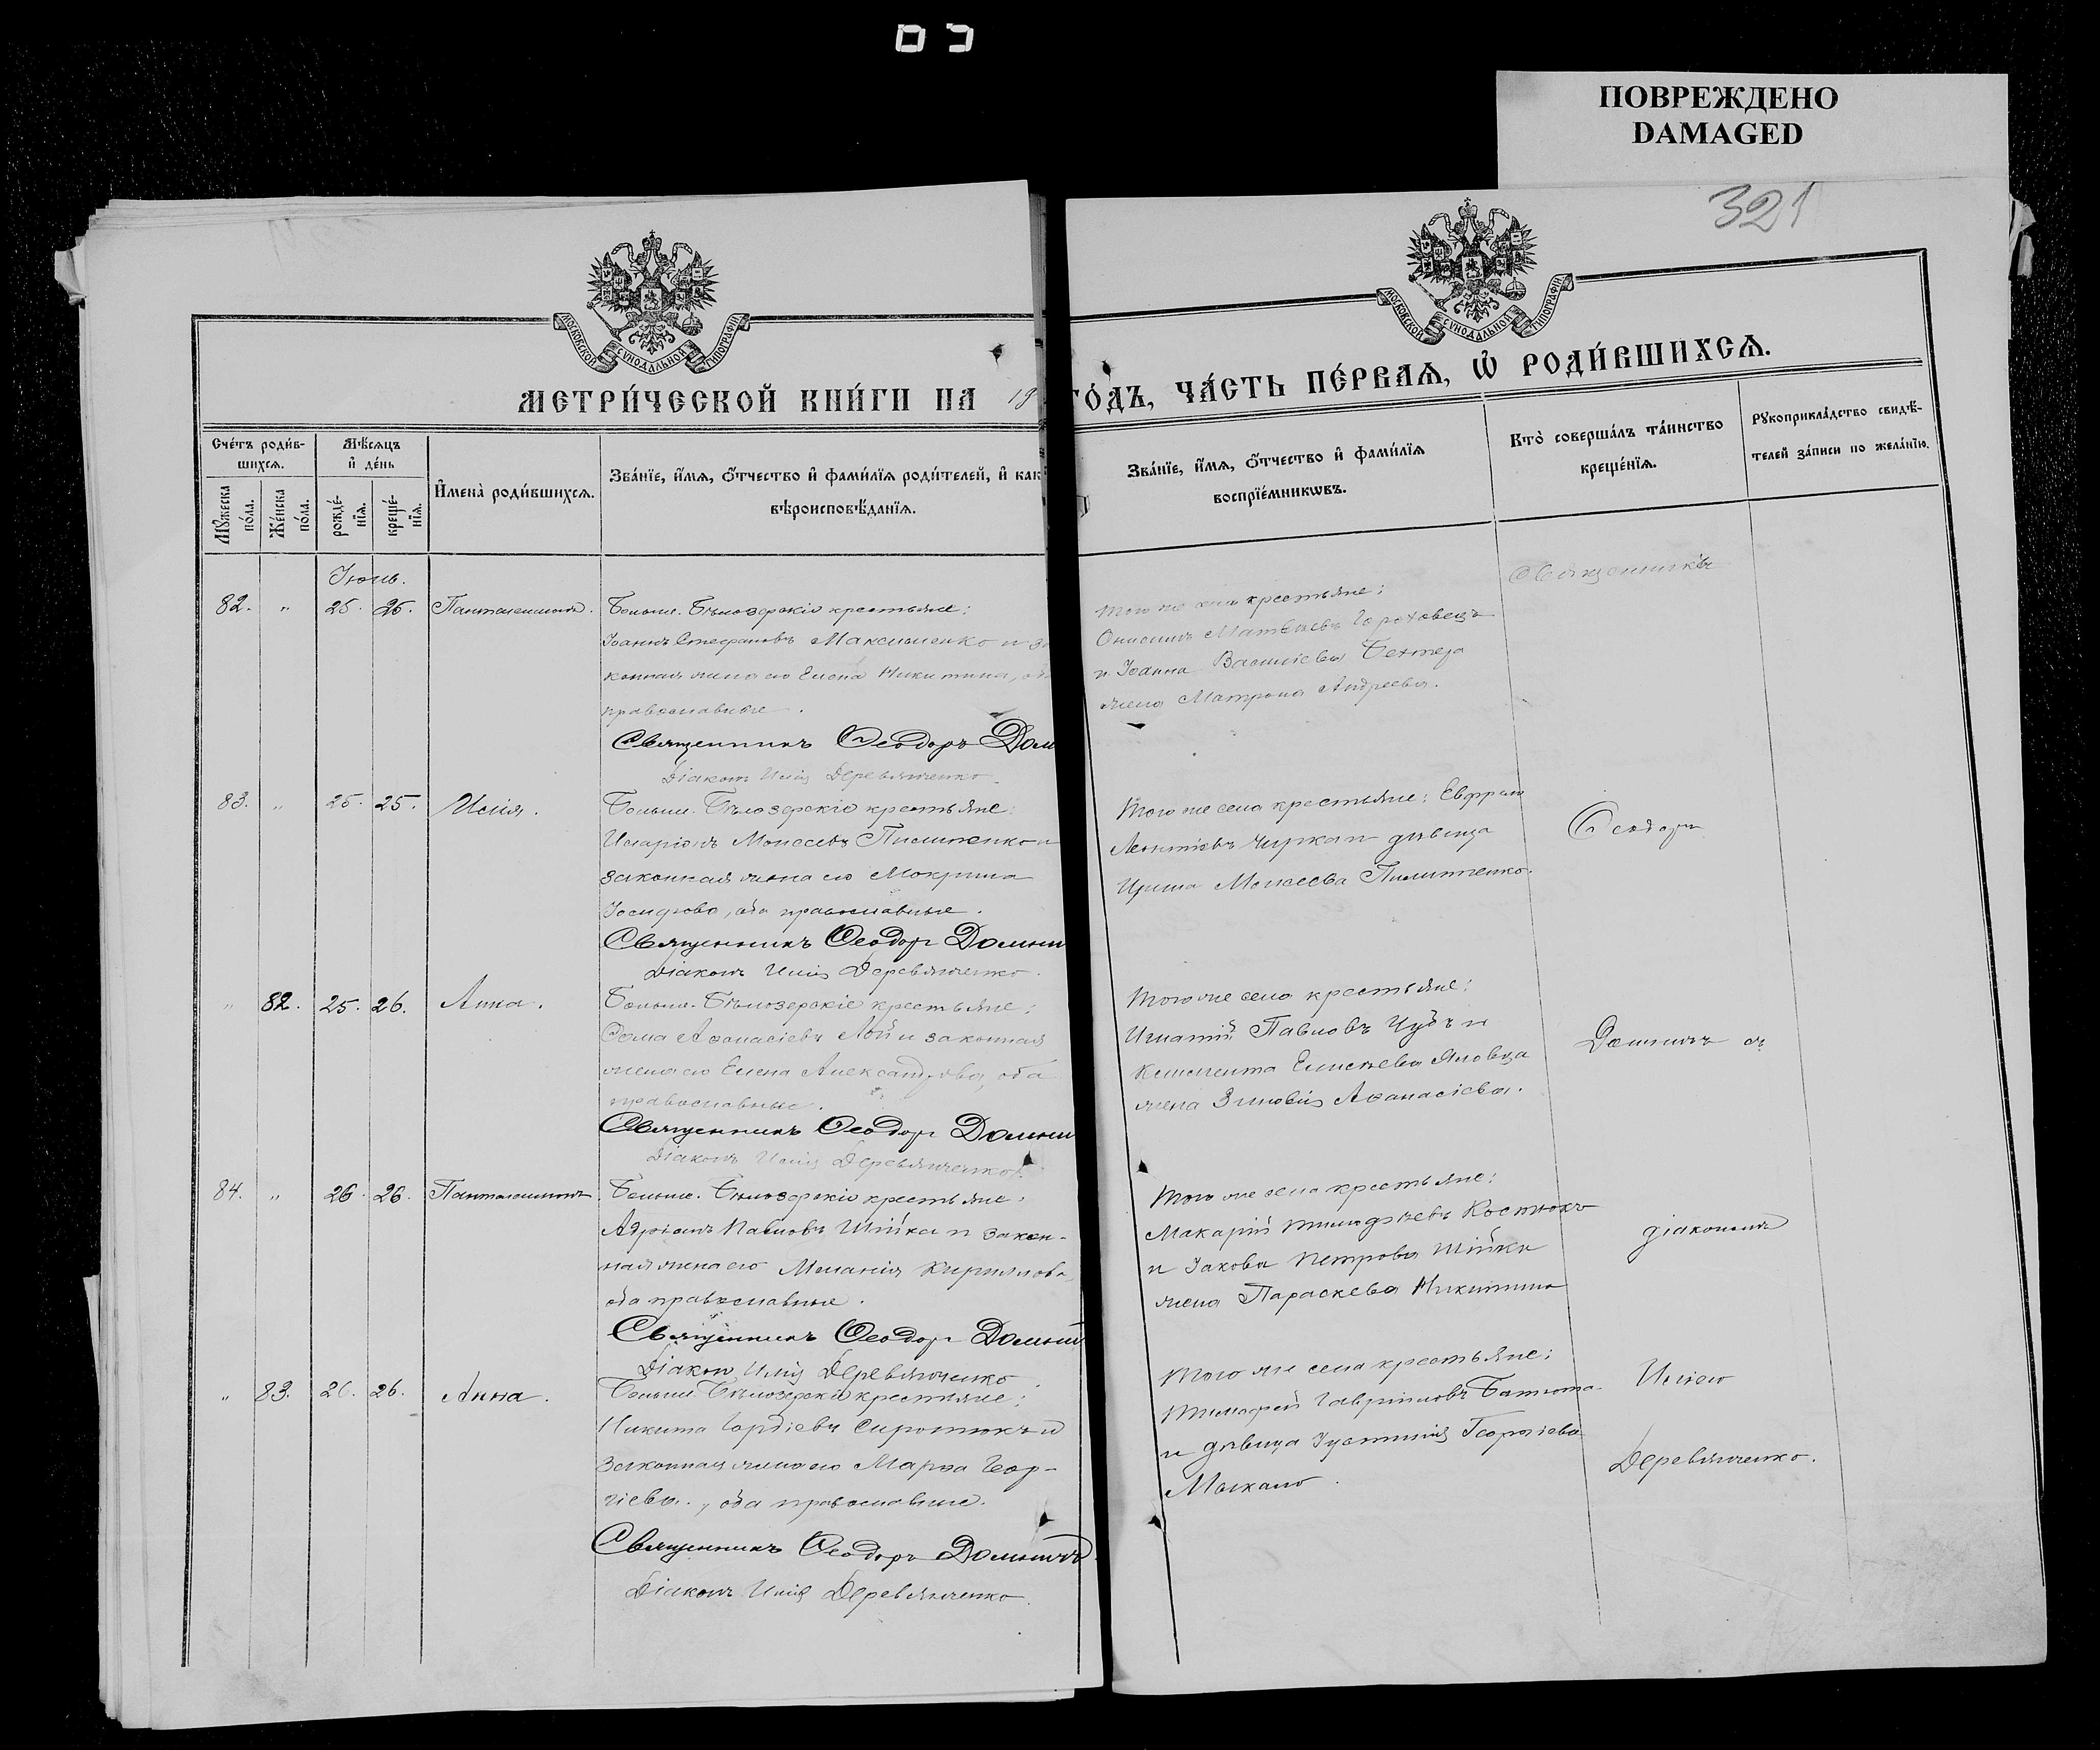 ПОВРЕЖДЕНО
DAMAGED
321
МОСКОВСКОЙ СУНОДАЛЬНОЙ ТИПОГРАФІИ
МОСКОВСКОЙ СУНОДАЛЬНОЙ ТИПОГРАФІИ
МЕТРИ́ЧЕСКОЙ КНИ́ГИ НА 19
ГО́ДЪ, ЧА́СТЬ ПЕ́РВАѦ, Ѡ҆ РОДИ́ВШИХСѦ.
Сче́тъ роди́в-
шихсѧ.
Мꙋжеска по́ла.
Же́нска по́ла.
Мѣ́сѧцъ
и҆ де́нь
рожде́-
нїѧ.
креще́-
нїѧ.
И҆мена̀ роди́вшихсѧ.
Зва́нїе, и҆́мѧ, ѻ҆́тчество и҆ фами́лїѧ роди́телей, и҆ как
вѣроисповѣ́данїѧ.
Зва́нїе, и҆́мѧ, ѻ҆́тчество и҆ фами́лїѧ
воспрїе́мникѡвъ.
Кто̀ соверша́лъ та́инство
креще́нїѧ.
Рꙋкоприкла́дство свидѣ́-
телей за́писи по жела́нїю.
Іюнь.
82. " 25. 25. Пантелеимонъ.
Больше-Бѣлозерскіе крестьяне:
Іоаннъ Стефановъ Максименко и за
конная жена его Елена Никитина, об
православные.
Священникъ Ѳеодоръ Дом
Діаконъ Илія Деревянченко.
Того же села крестьяне:
Онисимъ Матвѣевъ Гороховецъ
и Іоанна Василіева Бехтера
жена Матрона Андреева.
Священникъ
83. " 25. 25. Илія.
Больше-Бѣлозерскіе крестьяне:
Иларіонъ Моисеевъ Пилипенко и
законная жена его Мокрина
Іосифова, оба православные.
Священникъ Ѳеодоръ Домни
Діаконъ Илія Деревянченко.
Того же села крестьяне: Ефремъ
Леонтіевъ Чирка и дѣвица
Ирина Моисеева Пилипенко.
Ѳеодоръ
" 82. 25. 26. Анна.
Больше-Бѣлозерскіе крестьяне:
Ѳома Аѳанасіевъ Лой и законная
жена его Елена Александрова, оба
православные.
Священникъ Ѳеодоръ Домни
Діаконъ Илія Деревянченко.
Того же села крестьяне:
Игнатій Павловъ Чубъ и
Климента Елисѣева Яловца
жена Зиновія Аѳанасіева.
съ
84. " 26. 26. Пантелеимонъ
Больше-Бѣлозерскіе крестьяне:
Адріанъ Павловъ Шійка и закон-
ная жена его Меланія Кириллова,
оба православные.
Священникъ Ѳеодоръ Домни
Діаконъ Илія Деревянченко
Того же села крестьяне:
Макарій Тимофѣевъ Костюкъ
и Іакова Петрова Шійки
жена Параскева Никитина
діакономъ
" 83. 26. 26. Анна.
Больше-Бѣлозерскіе крестьяне:
Никита Гордіевъ Сиротюкъ и
законная жена его Марѳа Геор-
гіева, оба православные.
Священникъ Ѳеодоръ
Діаконъ Илія Деревянченко.
Того же села крестьяне:
Тимофей Гавріиловъ Батюта
и дѣвица Іустинія Георгіева
Москало.
Иліею
Деревянченко.